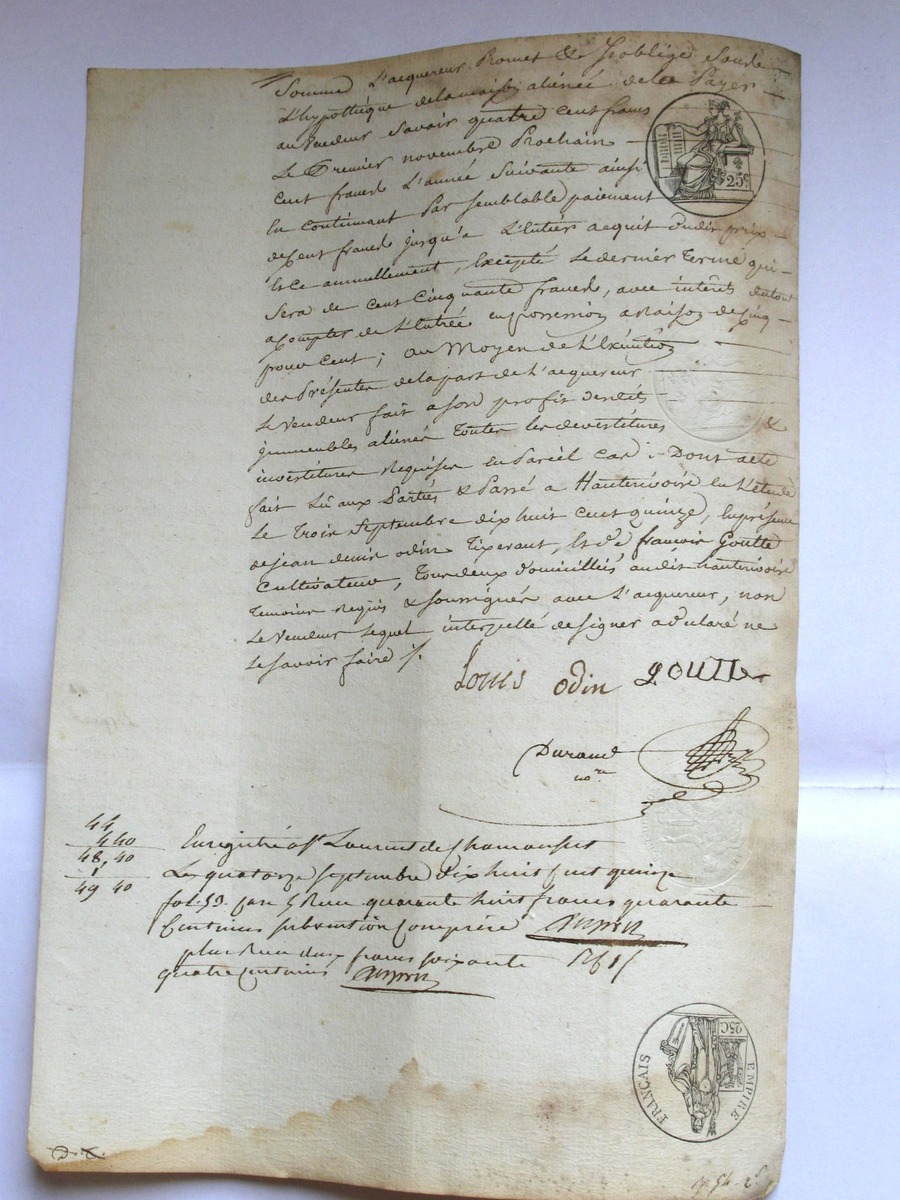 Somme L'acquereur Promet & s'oblige sous
L'hypothéque de la maison aliénée de la Payer
au Vendeur Savoir quatre cent francs
Le Premier novembre Prochain
cent francs L'année Suivante ainsi
En continuant Par semblable paiement
de Cent francs jusqu'à L'Entier acquit dudit prix
Et Ce annuellement, Excepté Le dernier Terme qui
Sera de cent Cinquante francs, avec intérêts du tout
a Compter de L'Entrée en possession a Raison de Cinq
pour Cent; au Moyen de L'Exécution
des Présentes de la part de L'acquereur
Le Vendeur fait a son profit desdits
immeubles aliénés Toutes les devestitures &
investitures Requises En Pareil cas :- Dont acte
fait Lû aux Parties & Passé a Hauterivoire En L'étude
Le Trois Septembre dix huit cent quinze, En présence
de jean denis odin Tixerant, Et de françois Goutte
Cultivateur, Tous deux domiciliés audit hauterivoire
Temoins Requis & Soussignés avec L'acquereur, non
Le Vendeur Lequel interpellé de signer a déclaré ne
Le Savoir faire ./.
Louis odin GOUTTe
Durand
nore
44
4 40
48, 40
1
49 40
Enregistré a St Laurent de Chamousset
Le quatorze septembre dix huit cent quinze
fol. 59. Case 5 Reçu quarante huit francs quarante
Centimes subvention Comprise
plus Reçu deux francs soixante
quatre centimes
25c
EMPIRE FRANÇAIS
25C